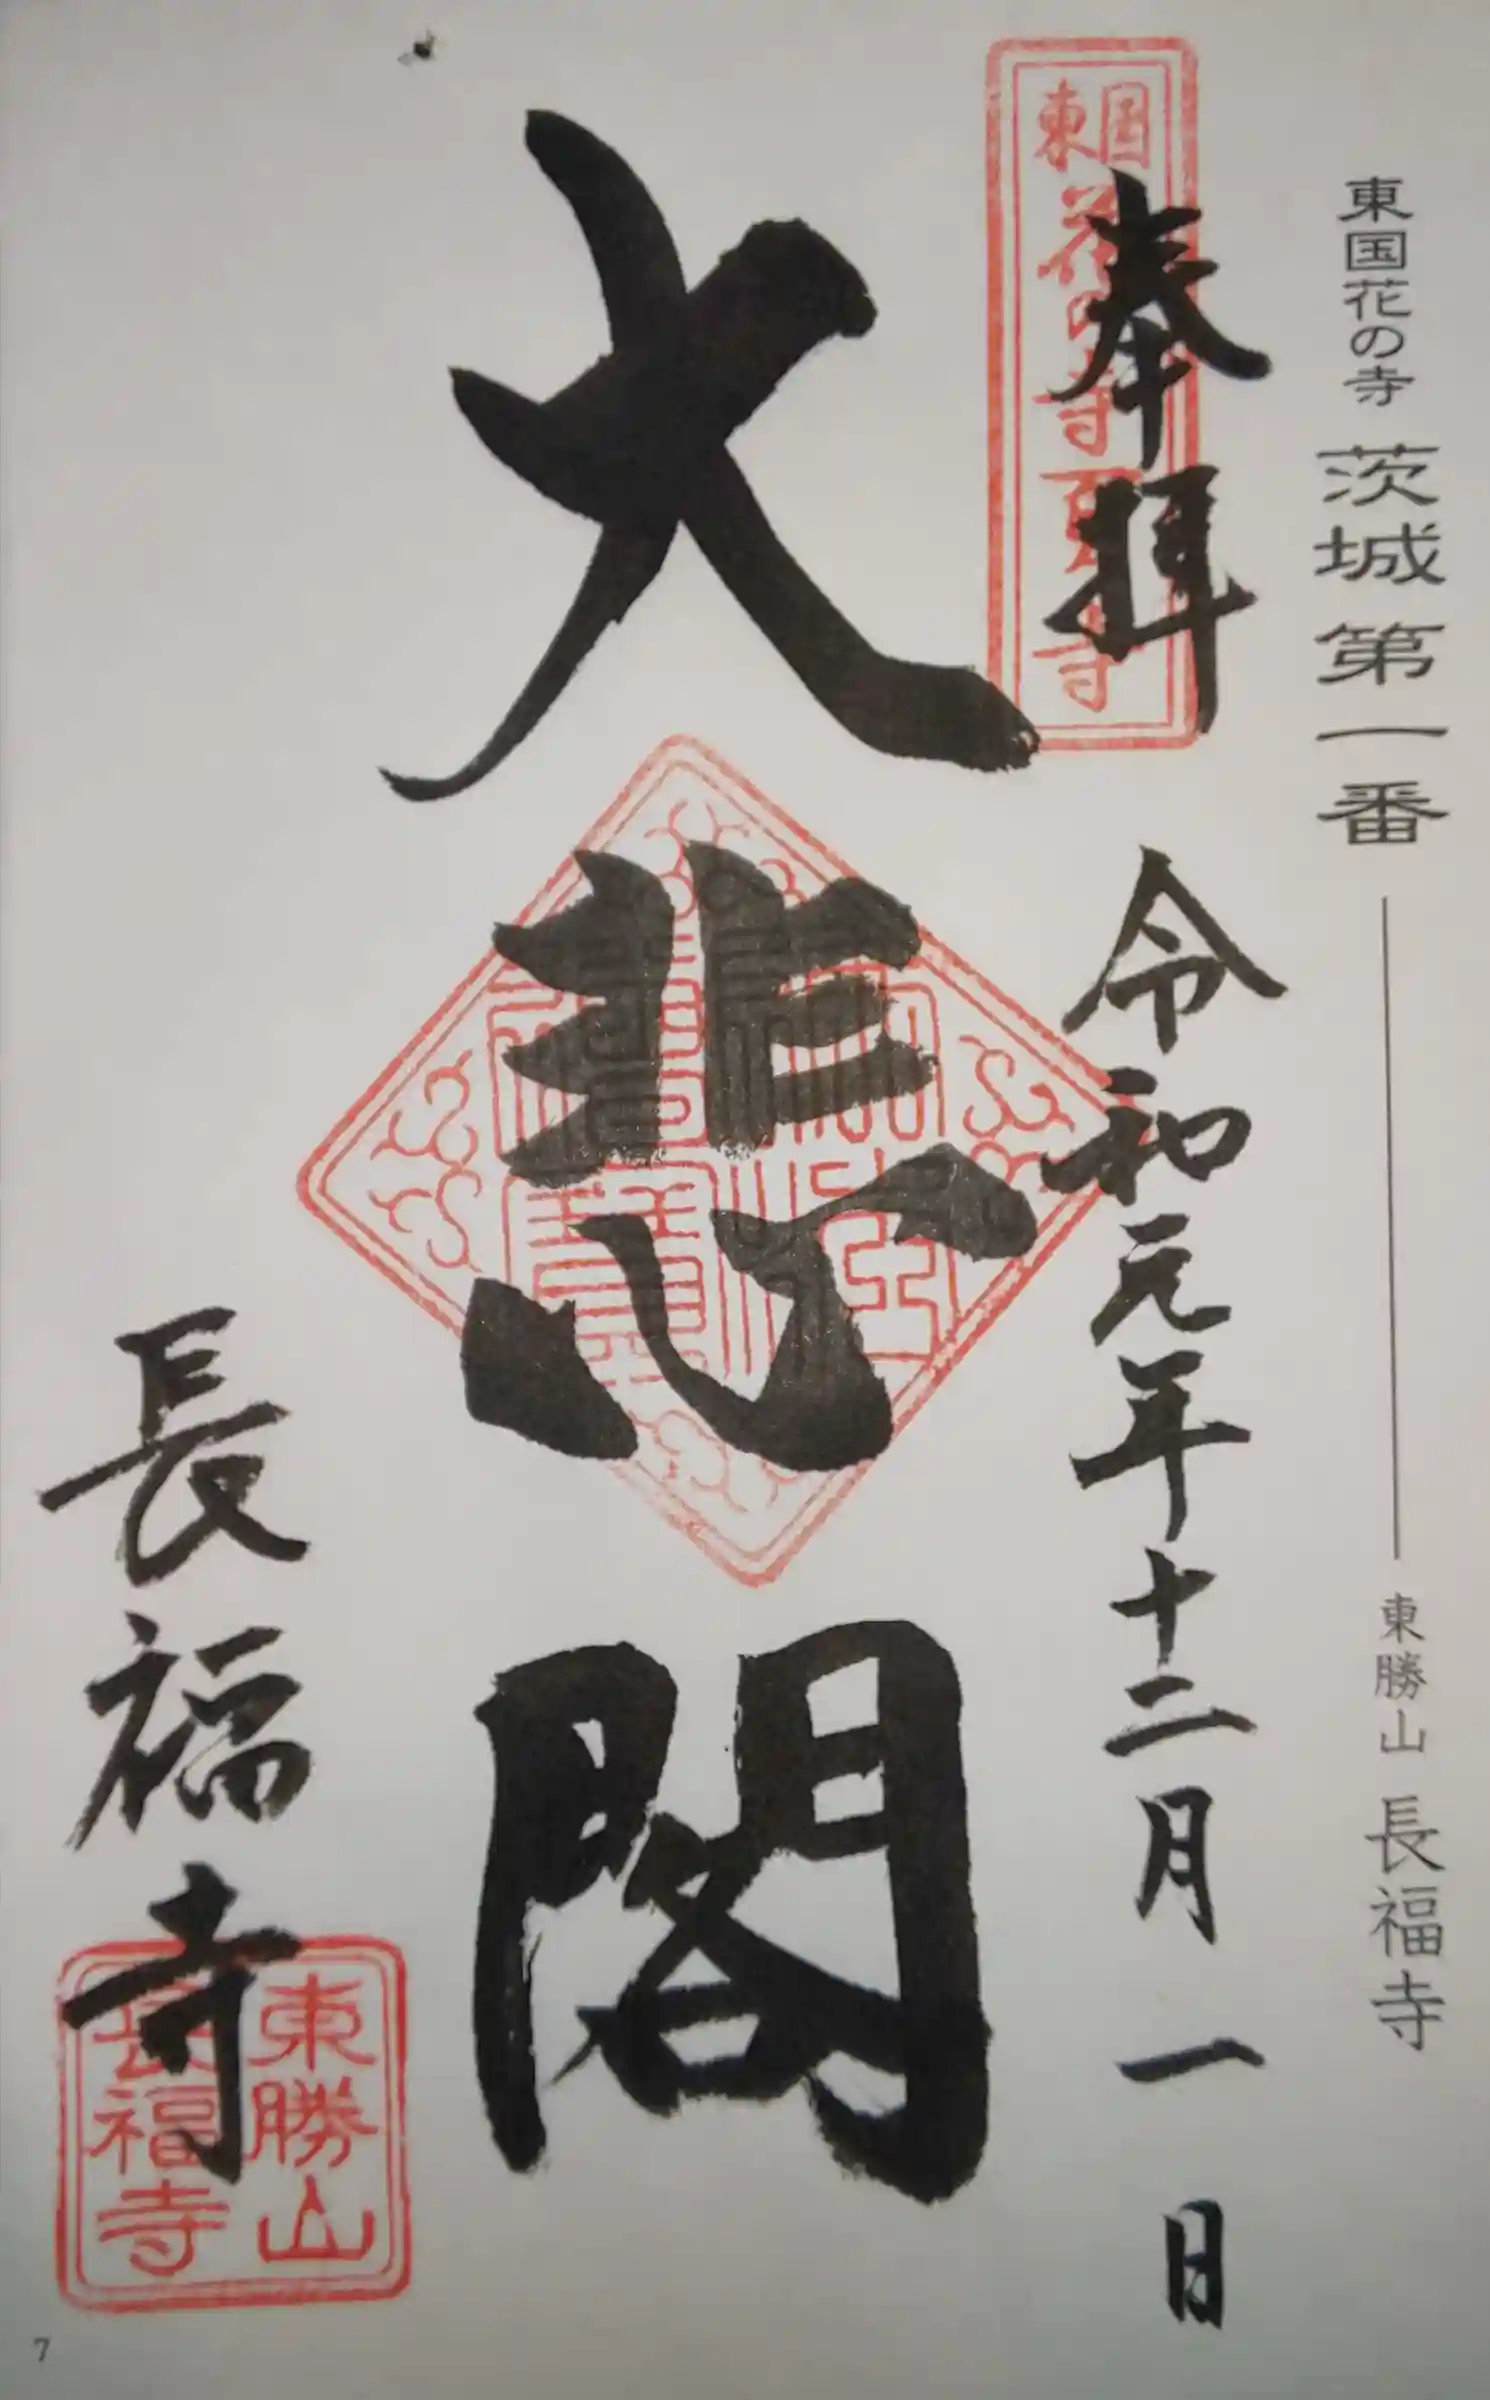 東国花の寺 茨城第一番 東勝山 長福寺
東国花の寺百ヶ寺
奉拝 令和元年十二月一日
大悲閣
長福寺
東勝山
長福寺
7